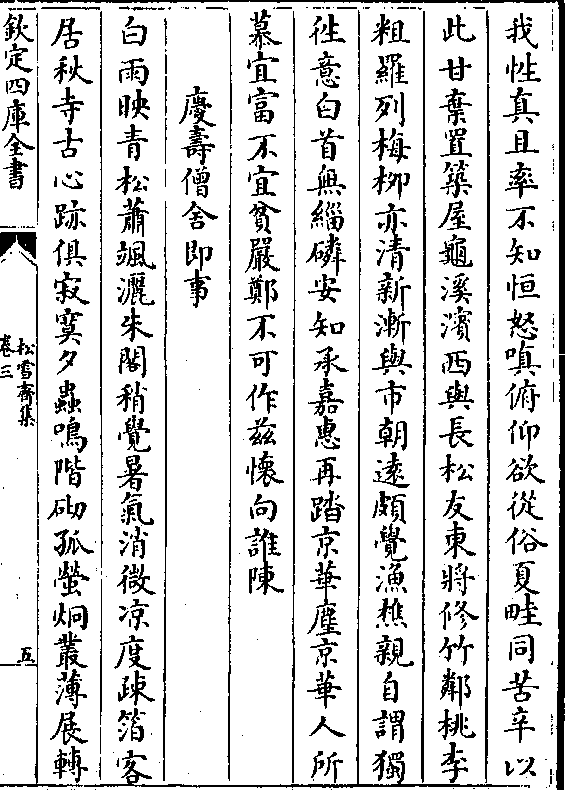 我性真且率不知恒怒嗔俯仰欲從俗夏畦同苦辛以
此甘棄置築屋龜溪濱西與長松友東將修竹鄰桃李
粗羅列梅栁亦清新漸與市朝逺頗覺漁樵親自謂獨
徃意白首無緇磷安知承嘉惠再踏京華塵京華人所
慕宜富不宜貧嚴鄭不可作兹懷向誰陳
慶壽僧舍即事
白雨映青松蕭颯灑朱閣稍覺暑氣消微凉度疎箔客
居秋寺古心跡俱寂寞夕蟲鳴階砌孤螢炯叢薄展轉
欽定四庫全書
松雪齋集
卷三
五